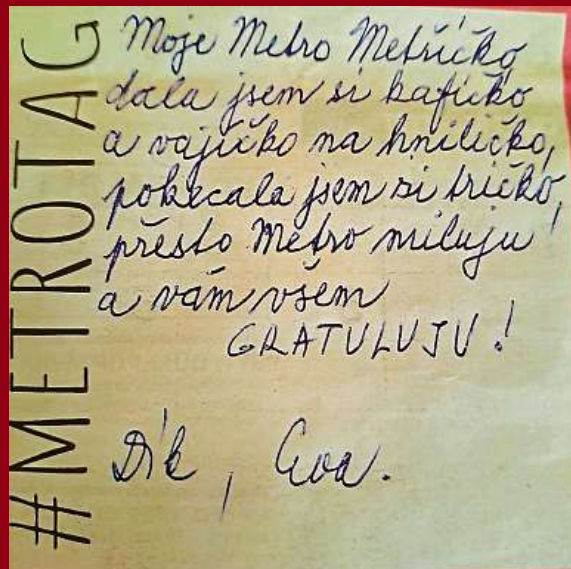 #METROTAG
Moje Metro Metříčko
dala jsem si kafíčko
a vajíčko na hniličko,
pokecala jsem si tričko,
přesto Metro miluju
a vám všem
GRATULUJU!
Dík, Eva.